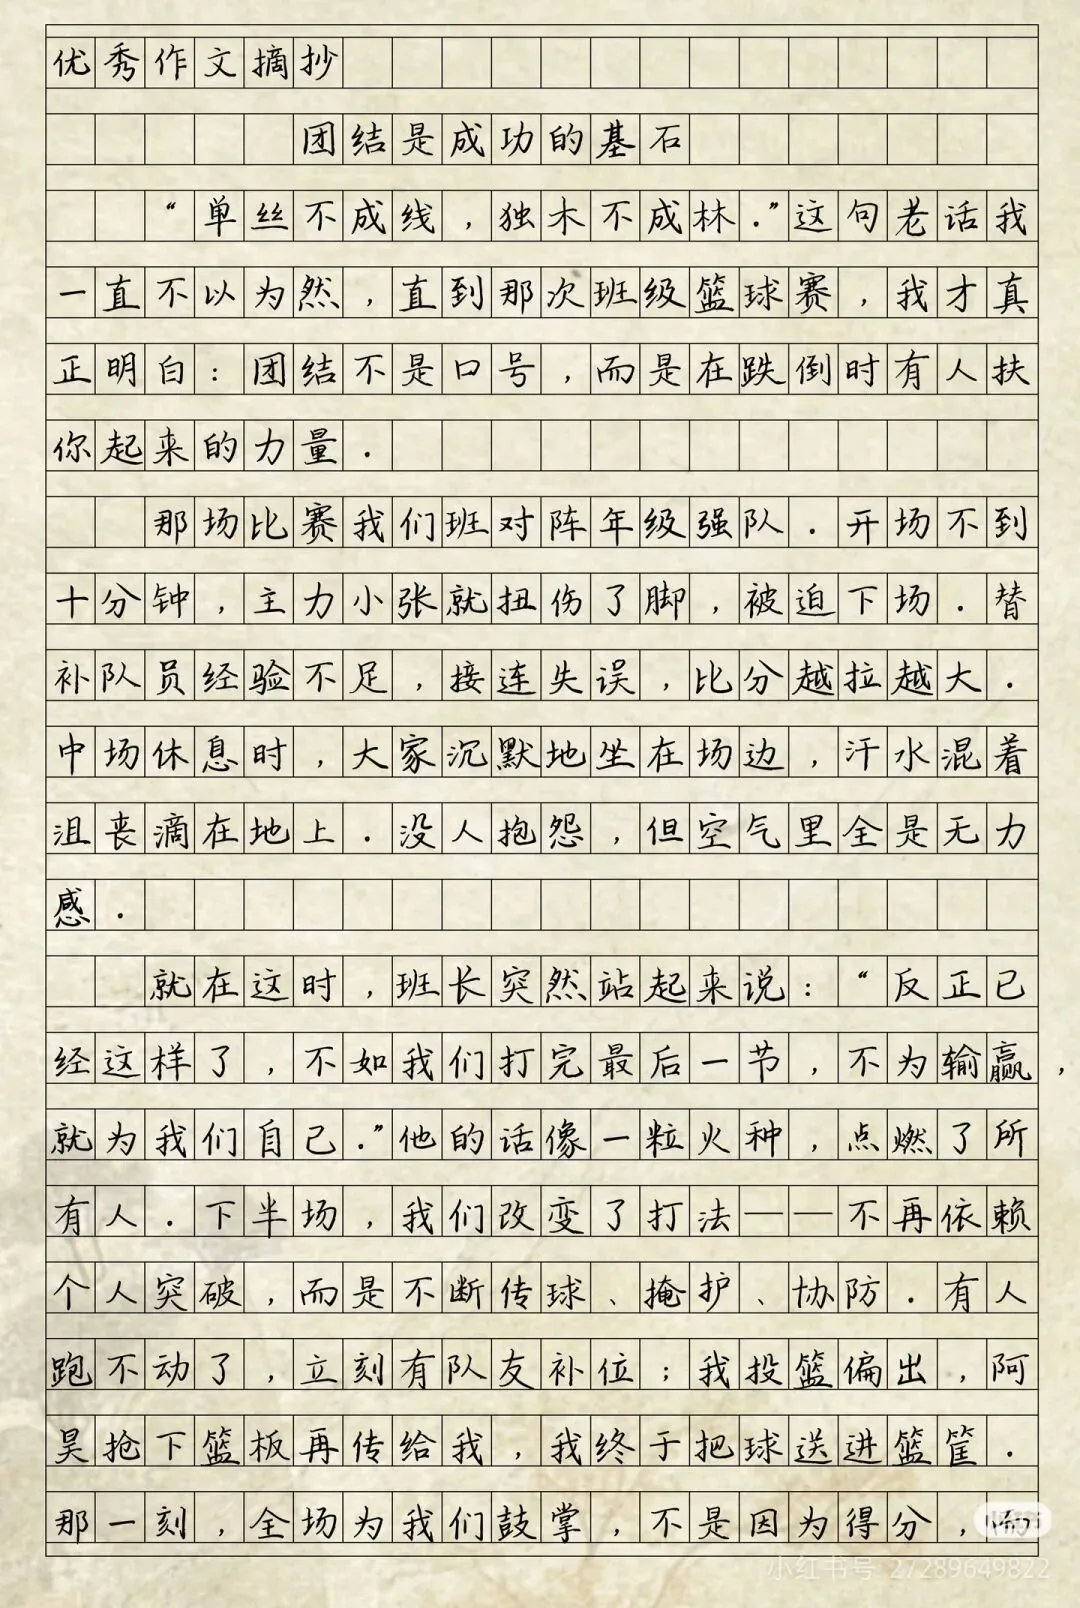 优秀作文摘抄
团结是成功的基石
“单丝不成线，独木不成林．”这句老话我
一直不以为然，直到那次班级篮球赛，我才真
正明白：团结不是口号，而是在跌倒时有人扶
你起来的力量．
那场比赛我们班对阵年级强队．开场不到
十分钟，主力小张就扭伤了脚，被迫下场．替
补队员经验不足，接连失误，比分越拉越大．
中场休息时，大家沉默地坐在场边，汗水混着
沮丧滴在地上．没人抱怨，但空气里全是无力
感．
就在这时，班长突然站起来说：“反正已
经这样了，不如我们打完最后一节，不为输赢，
就为我们自己．”他的话像一粒火种，点燃了所
有人．下半场，我们改变了打法——不再依赖
个人突破，而是不断传球、掩护、协防．有人
跑不动了，立刻有队友补位；我投篮偏出，阿
昊抢下篮板再传给我，我终于把球送进篮筐．
那一刻，全场为我们鼓掌，不是因为得分，
小红书号 27289649822